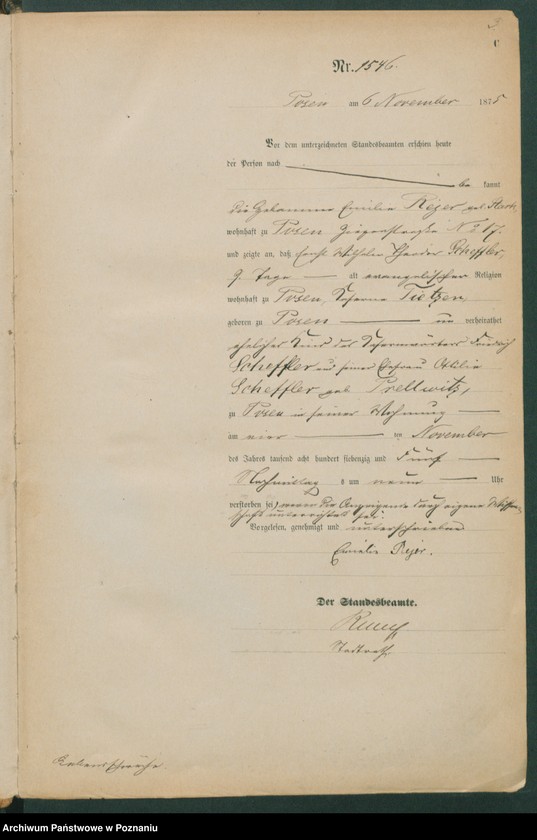 Nr. 1546.
Posen am 6 November 1875
Vor dem unterzeichneten Standesbeamten erschien heute
der Person nach be kannt
die Hebamme Emilie Rejer geb. Stark
wohnhaft zu Posen No 17.
und zeigte an, daß Ernst Wilhelm Theodor Scheffler,
9 Tage alt evangelischer Religion
wohnhaft zu Posen, Caserne Tietzen,
geboren zu Posen un verheirathet
eheliches Kind des Friedrich
Scheffler und seiner Ehefrau Ottilie
Scheffler geb. Prellwitz,
zu Posen in seiner Wohnung
am vier ten November
des Jahres tausend acht hundert siebenzig und fünf
Nachmittag s um neun Uhr
verstorben sei, wovon die Anzeigende durch eigene Wissen-
schaft unterrichtet sei.
Vorgelesen, genehmigt und unterschrieben
Emilie Rejer.
Der Standesbeamte.
Stadtrath.
Archiwum Państwowe w Poznaniu